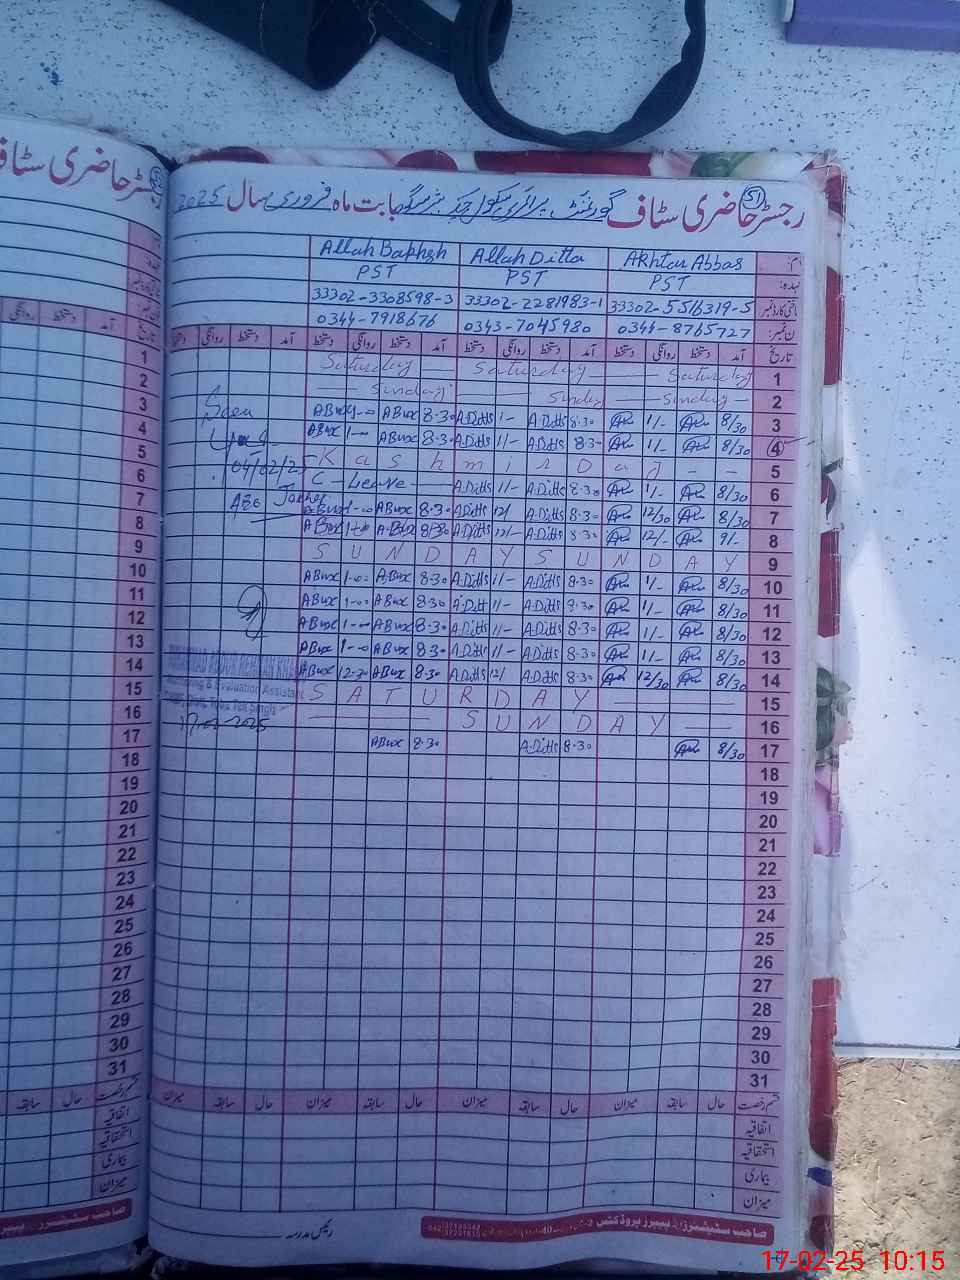 رجسٹر حاضری سٹاف گورنمنٹ پرائمری سکول بابت ماہ فروری سال 2025
51
Allah Bakhsh Allah Ditta Akhtar Abbas
PST PST PST
عہدہ:
33302-3308598-3 33302-2281983-1 33302-5516319-5
شناختی کارڈ نمبر:
0344-7918676 0343-7045980 0344-8765727
فون نمبر:
تاریخ آمد دستخط روانگی دستخط آمد دستخط روانگی دستخط آمد دستخط روانگی دستخط آمد دستخط روانگی دستخط
Saturday — Saturday — Saturday 1
— Sunday — Sunday — Sunday — 2
ABux 1-00 ABux 8.30 A.Ditta 1/- A.Ditta 8.30 1/- 8/30 3
Seen
ABux 1-00 ABux 8.30 A.Ditta 1/- A.Ditta 8.3 1/- 8/30 4
04/02/25
Kashmir Day - - 5
C - Leave — A.Ditta 1/- A.Ditta 8.30 1/- 8/30 6
AEO
ABux 1-00 ABux 8.30 A.Ditta 12/ A.Ditta 8.30 12/30 8/30 7
ABux ABux 8/30 A.Ditta 12/- A.Ditta 8.30 12/- 9/- 8
SUNDAY SUNDAY 9
ABux 1-00 ABux 8.30 A.Ditta 1/- A.Ditta 8.30 1/- 8/30 10
ABux 1-00 ABux 8.30 A.Ditt 1/- A.Ditta 8.30 1/- 8/30 11
ABux 1-00 ABux 8.30 A.Ditta 1/- A.Ditta 8.30 1/- 8/30 12
ABux 1-00 ABux 8.30 A.Ditta 1/- A.Ditta 8.30 1/- 8/30 13
ABux 12-30 ABux 8.30 A.Ditta 12/ A.Ditta 8.30 12/30 8/30 14
Monitoring & Evaluation Assistant
Toba Tek Singh
17-02-2025
SATURDAY — 15
— SUNDAY — 16
ABux 8.30 A.Ditta 8.30 8/30 17
18
19
20
21
22
23
24
25
26
27
28
29
30
31
قسم رخصت حال سابقہ میزان حال سابقہ میزان حال سابقہ میزان حال سابقہ میزان
اتفاقیہ
استحقاقیہ
بیماری
میزان
رئیس مدرسہ
صاحب سٹیشنرز اینڈ پیپرز پروڈکٹس
رجسٹر حاضری سٹاف
تاریخ آمد دستخط روانگی
1
2
3
4
5
6
7
8
9
10
11
12
13
14
15
16
17
18
19
20
21
22
23
24
25
26
27
28
29
30
31
قسم رخصت حال سابقہ
اتفاقیہ
استحقاقیہ
بیماری
میزان
صاحب سٹیشنرز اینڈ پیپرز
17-02-25 10:15